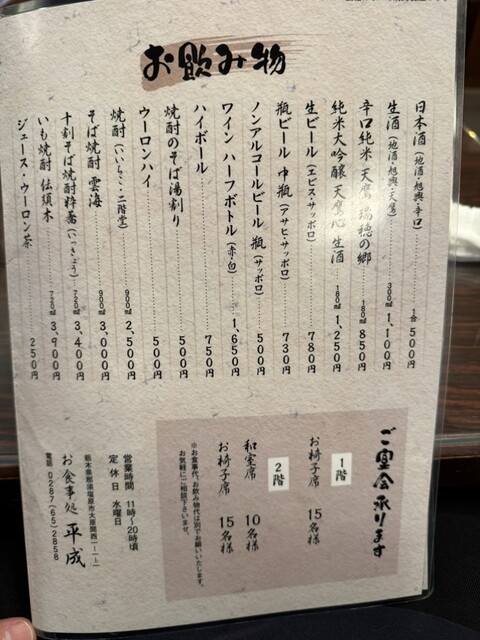 お飲み物
日本酒(地酒・旭興・辛口) 1合 500円
生酒(地酒・旭興・天鷹) 300㎖ 1,100円
辛口純米 天鷹 瑞穂の郷 180㎖ 850円
純米大吟醸 天鷹心 生酒 180㎖ 1,250円
生ビール(エビス・サッポロ) 780円
瓶ビール 中瓶(アサヒ・サッポロ) 730円
ノンアルコールビール 瓶(サッポロ) 500円
ワイン ハーフボトル(赤・白) 1,650円
ハイボール 750円
焼酎のそば湯割り 500円
ウーロンハイ 500円
焼酎(いいちこ・二階堂) 900㎖ 2,500円
そば焼酎 雲海 900㎖ 3,000円
十割そば焼酎粋蕎(いっきょう) 720㎖ 3,400円
いも焼酎 伝須木 720㎖ 3,900円
ジュース・ウーロン茶 250円
ご宴会承ります
1階
お椅子席 15名様
2階
和室席 10名様
お椅子席 15名様
※お食事代、お飲み物代は別でお願いいたします。
お気軽にご相談下さいませ。
営業時間 11時〜20時頃
定休日 水曜日
栃木県那須塩原市大原間西一-一-一
お食事処 平成
電話 0287(65)2858